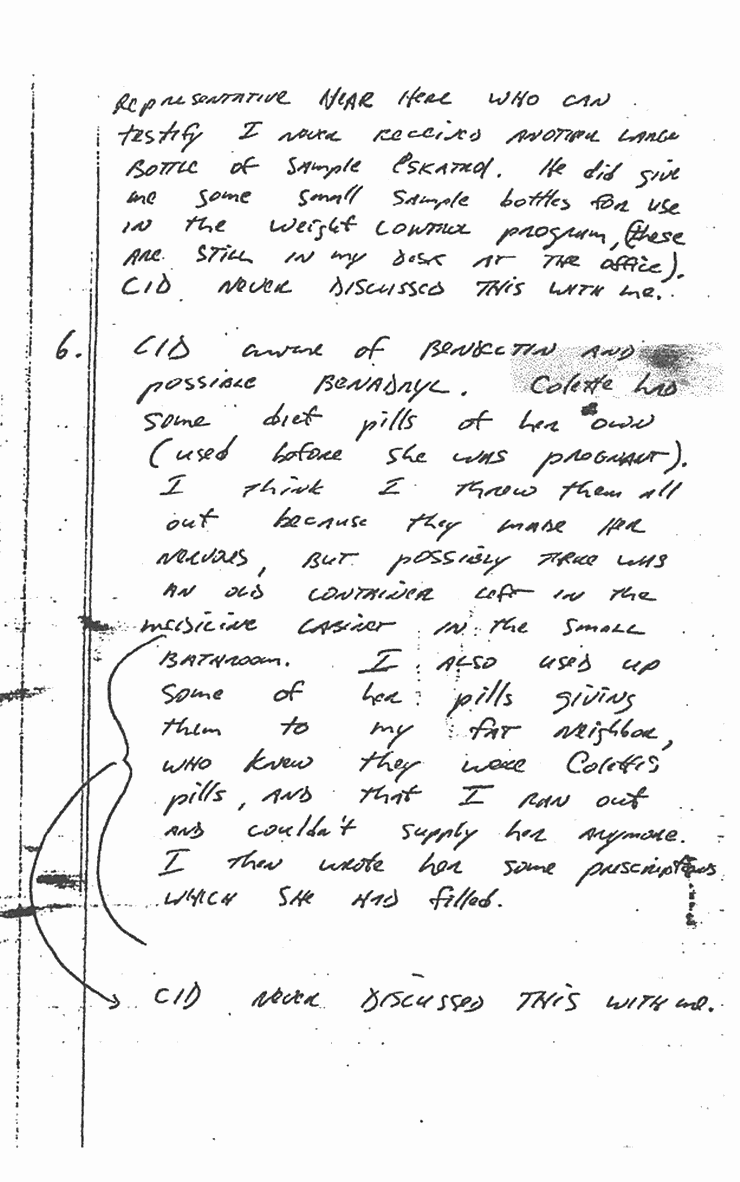 Representative near here who can
testify I never received another large
bottle of sample Eskatrol. He did give
me some small sample bottles for use
in the weight control program, (these
are still in my desk at the office).
CID never discussed this with me.
6. CID aware of Bendectin and
possible Benadryl. Colette had
some diet pills of her own
(used before she was pregnant).
I think I threw them all
out because they made her
nervous, but possibly there was
an old container left in the
medicine cabinet in the small
bathroom. I also used up
some of her pills giving
them to my fat neighbor,
who knew they were Colette's
pills, and that I ran out
and couldn't supply her anymore.
I then wrote her some prescriptions
which she had filled.
CID never discussed this with me.